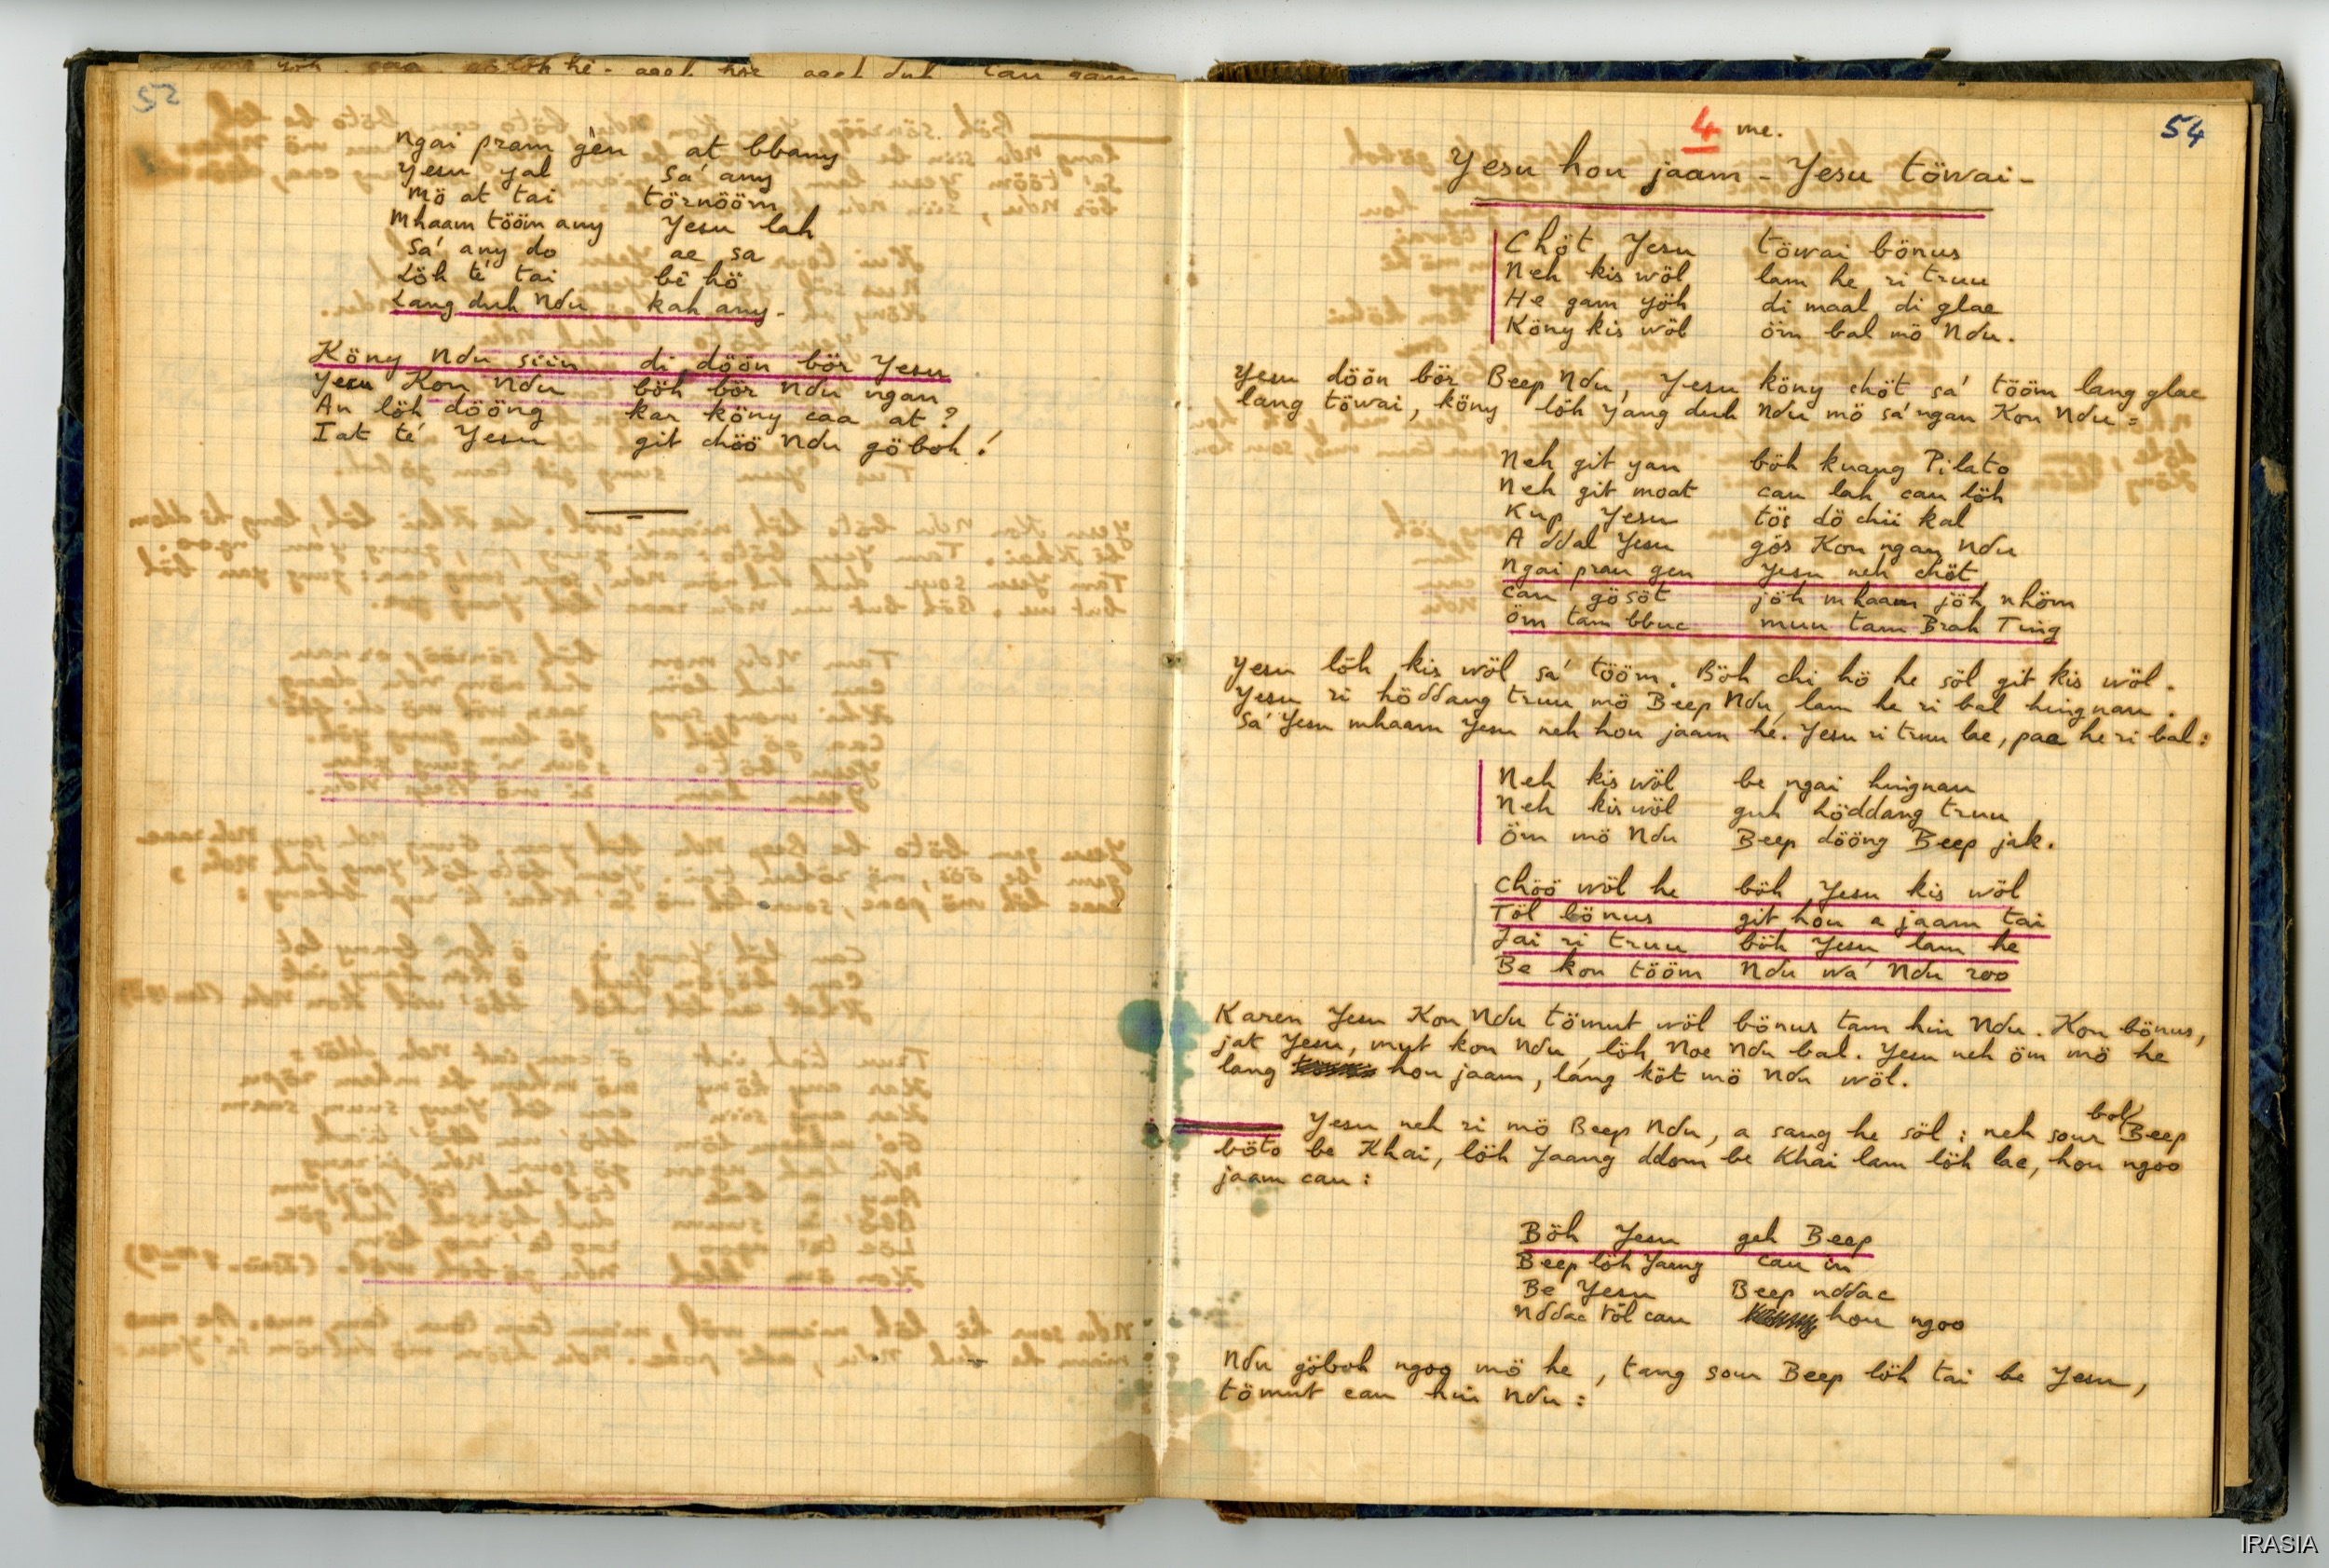 52
ngai pram gën at bbany
Yesu yal sa' any
mö at tai törnööm
Mhaam tööm any Yesu lah
Sa' any do ae sa
Löh te' tai bê hö
Lang duh Ndu kah any.
Köny Ndu siin di döön bör Yesu
Yesu Kon Ndu böh bör Ndu ngan
An löh dööng kar köny caa at?
Iat te' Yesu git chöö Ndu göboh!
54
4 me.
Yesu hou jaam - Yesu töwai -
Chöt Yesu töwai bönus
Neh kis wöl lam he ri truu
He gam yöh di maal di glae
Köny kis wöl öm bal mö Ndu.
Yesu döön bör Beep Ndu, Yesu köny chöt sa' tööm lang glae
lang töwai, köny löh yang duh Ndu mö sa' ngan Kon Ndu =
Neh git yan böh kuang Pilato
Neh git moat cau lah cau löh
Kup Yesu tös dö chii kal
A ddal Yesu gös Kon ngan Ndu
Ngai prau gen Yesu neh chöt
Cau gösöt jöh mhaam jöh nhöm
Öm tam bbuc muu tam Brah Ting
Yesu löh kis wöl sa' tööm. Böh chi hö he söl git kis wöl.
Yesu ri höddang truu mö Beep Ndu, lam he ri bal huignau.
Sa' Yesu mhaam Yesu neh hou jaam hé. Yesu ri truu lae, pae he ri bal:
Neh kis wöl be ngai huignau
Neh kis wöl guh höddang truu
Öm mö Ndu Beep dööng Beep jak.
Chöö wöl he böh Yesu kis wöl
Töl bönus git hou a jaam tai
Jai ri truu böh Yesu lam he
Be kon tööm Ndu wa' Ndu roo
Karen Yesu Kon Ndu tömut wöl bönus tam hiu Ndu. Kon bönus,
jat Yesu, mut kon Ndu, löh Noe Ndu bal. Yesu neh öm mö he
lang hou jaam, lang köt mö Ndu wöl.
Yesu neh ri mö Beep Ndu, a sang he söl : neh sour bol Beep
böto be Khai, löh Jaang ddom be Khai lam löh lae, hou ngoo
jaam cau :
Böh Yesu geh Beep
Beep löh Jaang cau in
Be Yesu Beep nddac
Nddac röl cau hou ngoo
Ndu göboh ngog mö he, tang sour Beep löh tai be Yesu,
tömut cau hui Ndu :
IRASIA